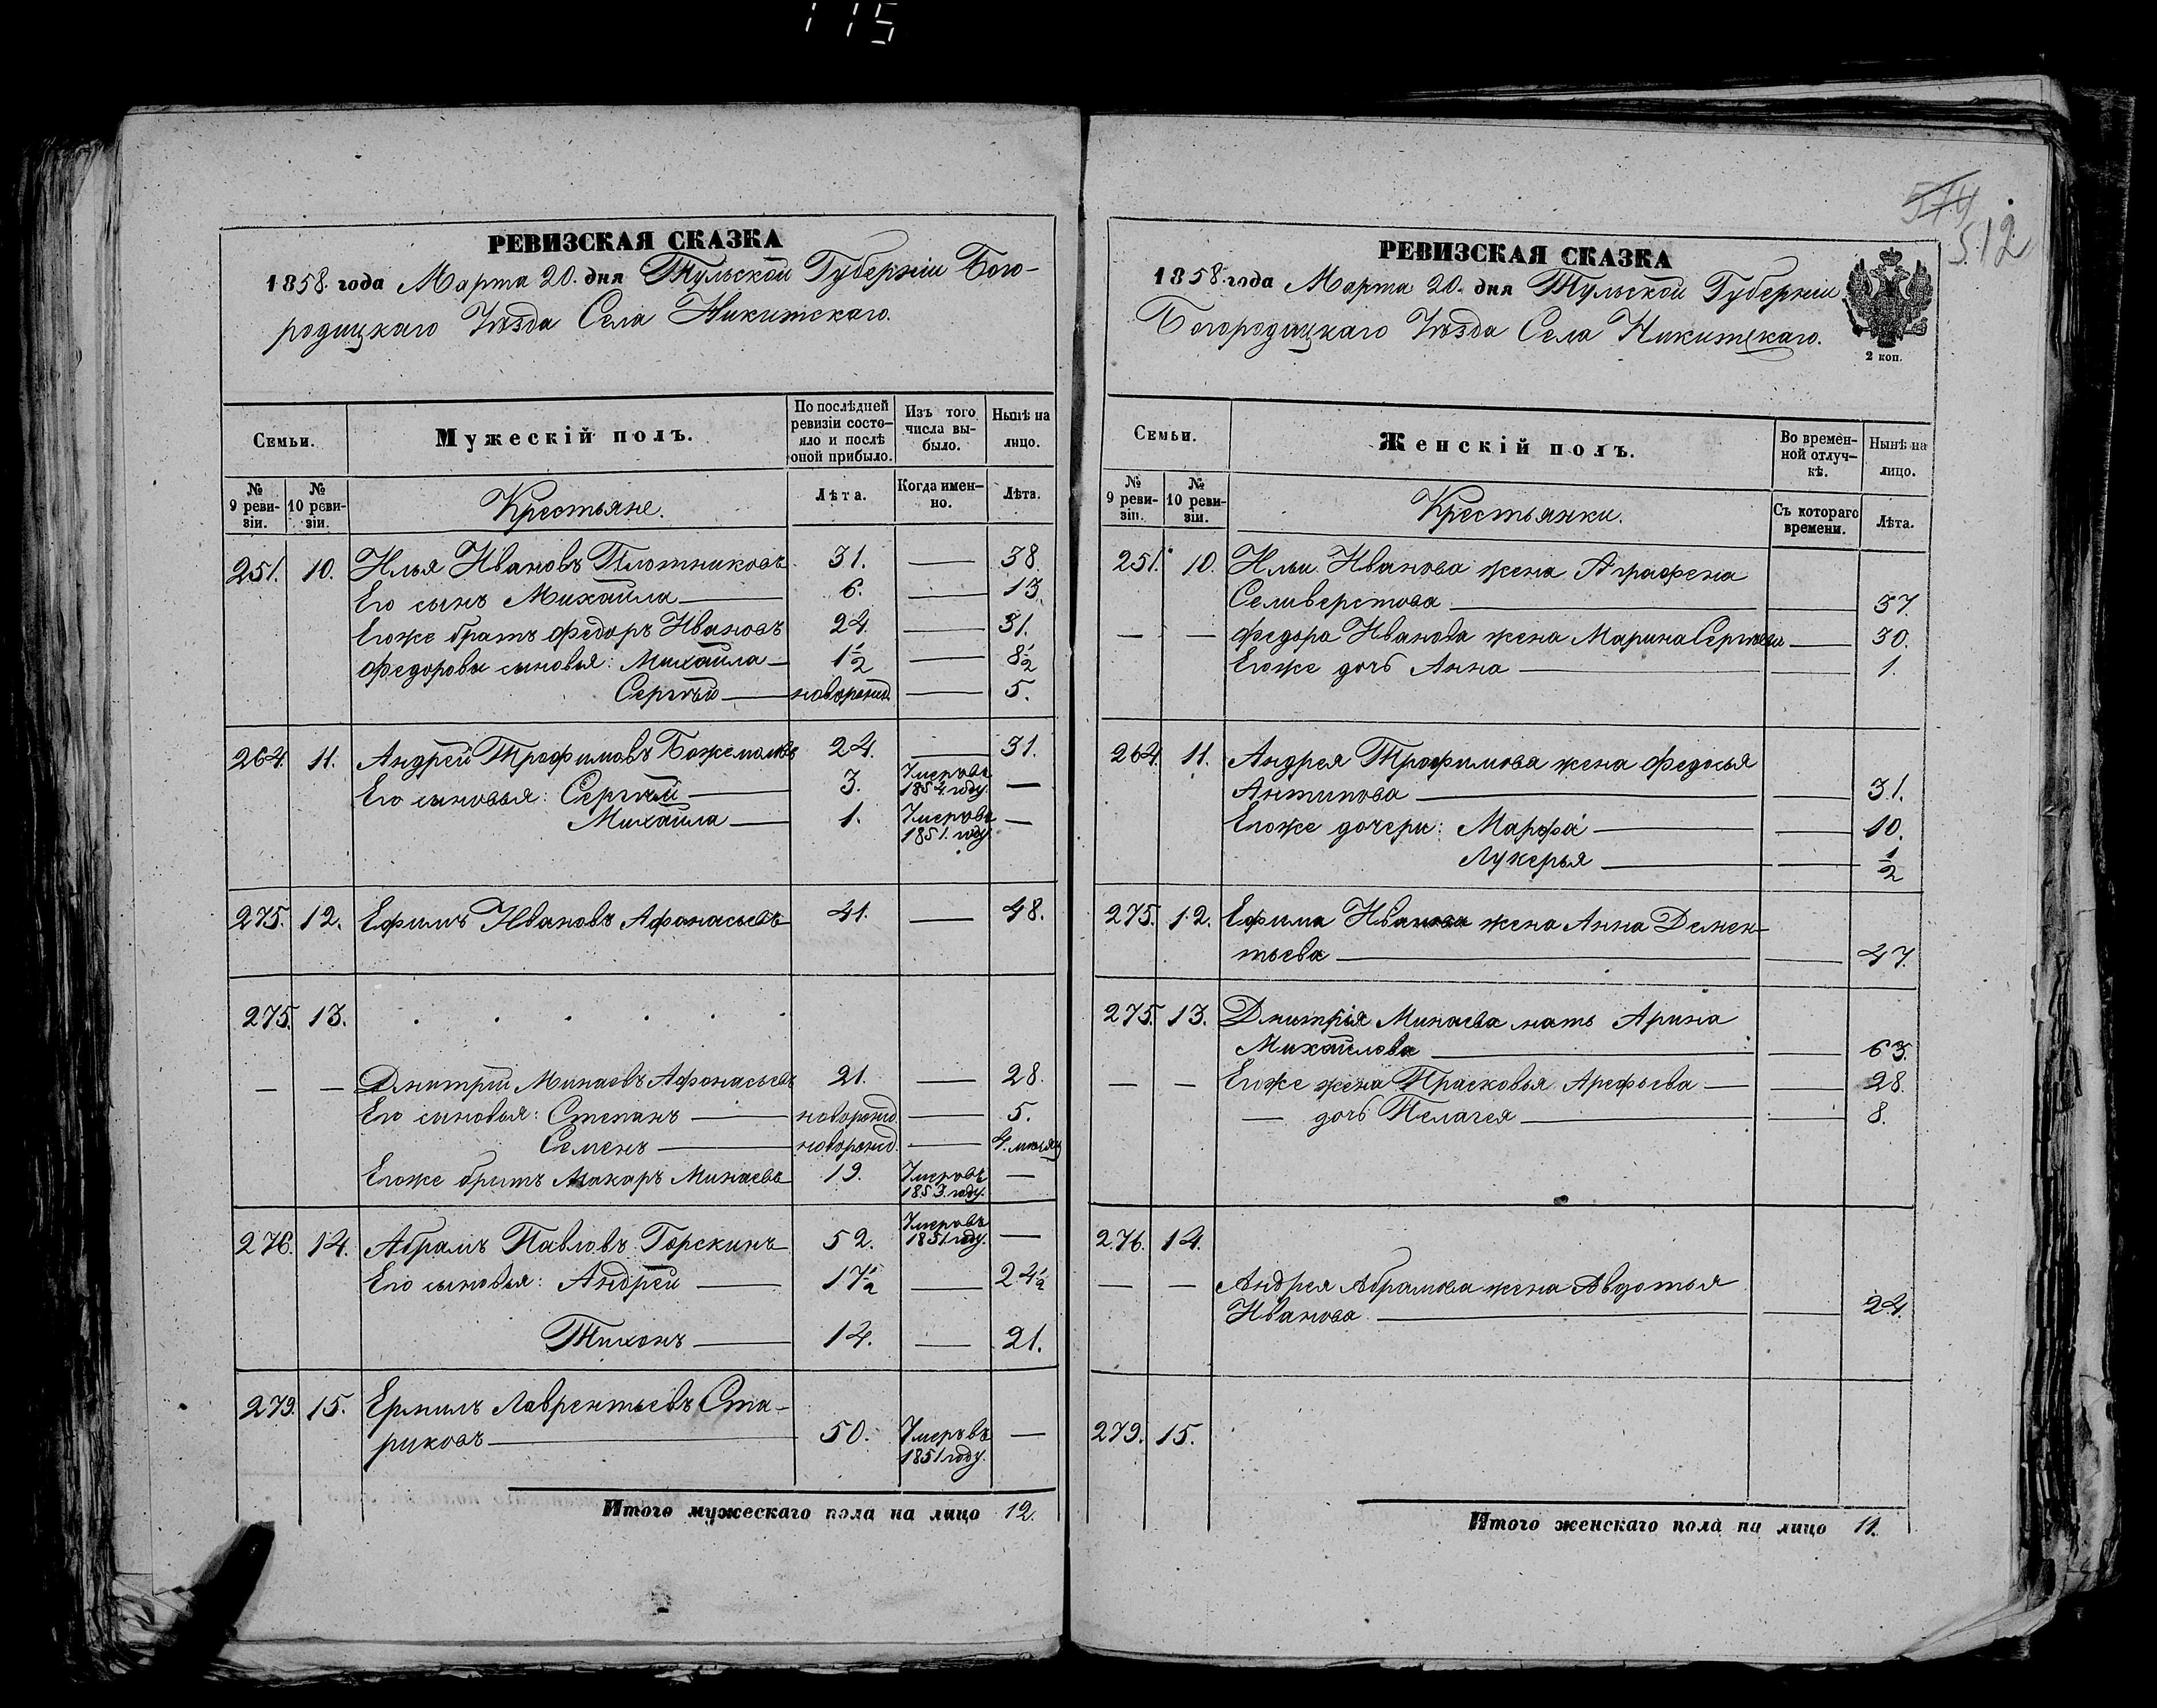 115
РЕВИЗСКАЯ СКАЗКА
1858. года Марта 20. дня Тульской Губерніи Бого-
родицкаго Уѣзда Села Никитскаго.
Семьи.
Мужескій полъ.
По послѣдней ревизіи состо-
яло и послѣ оной прибыло.
Изъ того числа вы-
было.
Нынѣ на лицо.
№ 9 реви-
зіи.
№ 10 реви-
зіи.
Крестьяне.
Лѣта.
Когда имен-
но.
Лѣта.
251. 10. Илья Ивановъ Плотниковъ 31. — 38.
Его сынъ Михайла — 6. — 13.
Егоже братъ Федоръ Ивановъ 24. — 31.
Федоровы сыновья: Михайла — 1½ — 8½
Сергѣй — новорожд. — 5.
264. 11. Андрей Трофимовъ Божемоловъ 24. — 31.
Его сыновья: Сергѣй — 3. Умеръ въ 1854. году. —
Михайла — 1. Умеръ въ 1851. году. —
275. 12. Ефимъ Ивановъ Афонасьевъ 41. — 48.
275. 13. . . . . . .
— — Дмитрій Минаевъ Афонасьевъ 21. — 28.
Его сыновья: Степанъ — новорожд. — 5.
Семенъ — новорожд. — 4. мѣсяц
Егоже братъ Макаръ Минаевъ 19. Умеръ въ 1853. году. —
276. 14. Абрамъ Павловъ Горскинъ 52. Умеръ въ 1851. году. —
Его сыновья: Андрей — 17½ — 24½
Тихонъ — 14. — 21.
279. 15. Ермилъ Лаврентьевъ Ста-
риковъ — 50. Умеръ въ 1851 году. —
Итого мужескаго пола на лицо 12.
574
512
РЕВИЗСКАЯ СКАЗКА
1858. года Марта 20. дня Тульской Губерніи
Богородицкаго Уѣзда Села Никитскаго.
2 коп.
Семьи.
Женскій полъ.
Во времен-
ной отлуч-
кѣ.
Нынѣ на лицо.
№ 9 реви-
зіи.
№ 10 реви-
зіи.
Крестьянки.
Съ котораго времени.
Лѣта.
251. 10. Ильи Иванова жена Аграфена
Селиверстова — — 37
— — Федора Иванова жена Марина Сергѣева — 30.
Егоже дочь Анна — — 1.
264. 11. Андрея Трофимова жена Федосья
Антипова — — 31.
Егоже дочери: Марфа — — 10.
Лукерья — — ½
275. 12. Ефима Иванова жена Анна Демен-
тьева — — 47.
275. 13. Дмитрія Минаева мать Арина
Михайлова — — 63.
— — Егоже жена Прасковья Арефьева — — 28.
— дочь Пелагея — — 8.
276. 14.
— — Андрея Абрамова жена Авдотья
Иванова — — 24.
279. 15.
Итого женскаго пола на лицо 11.